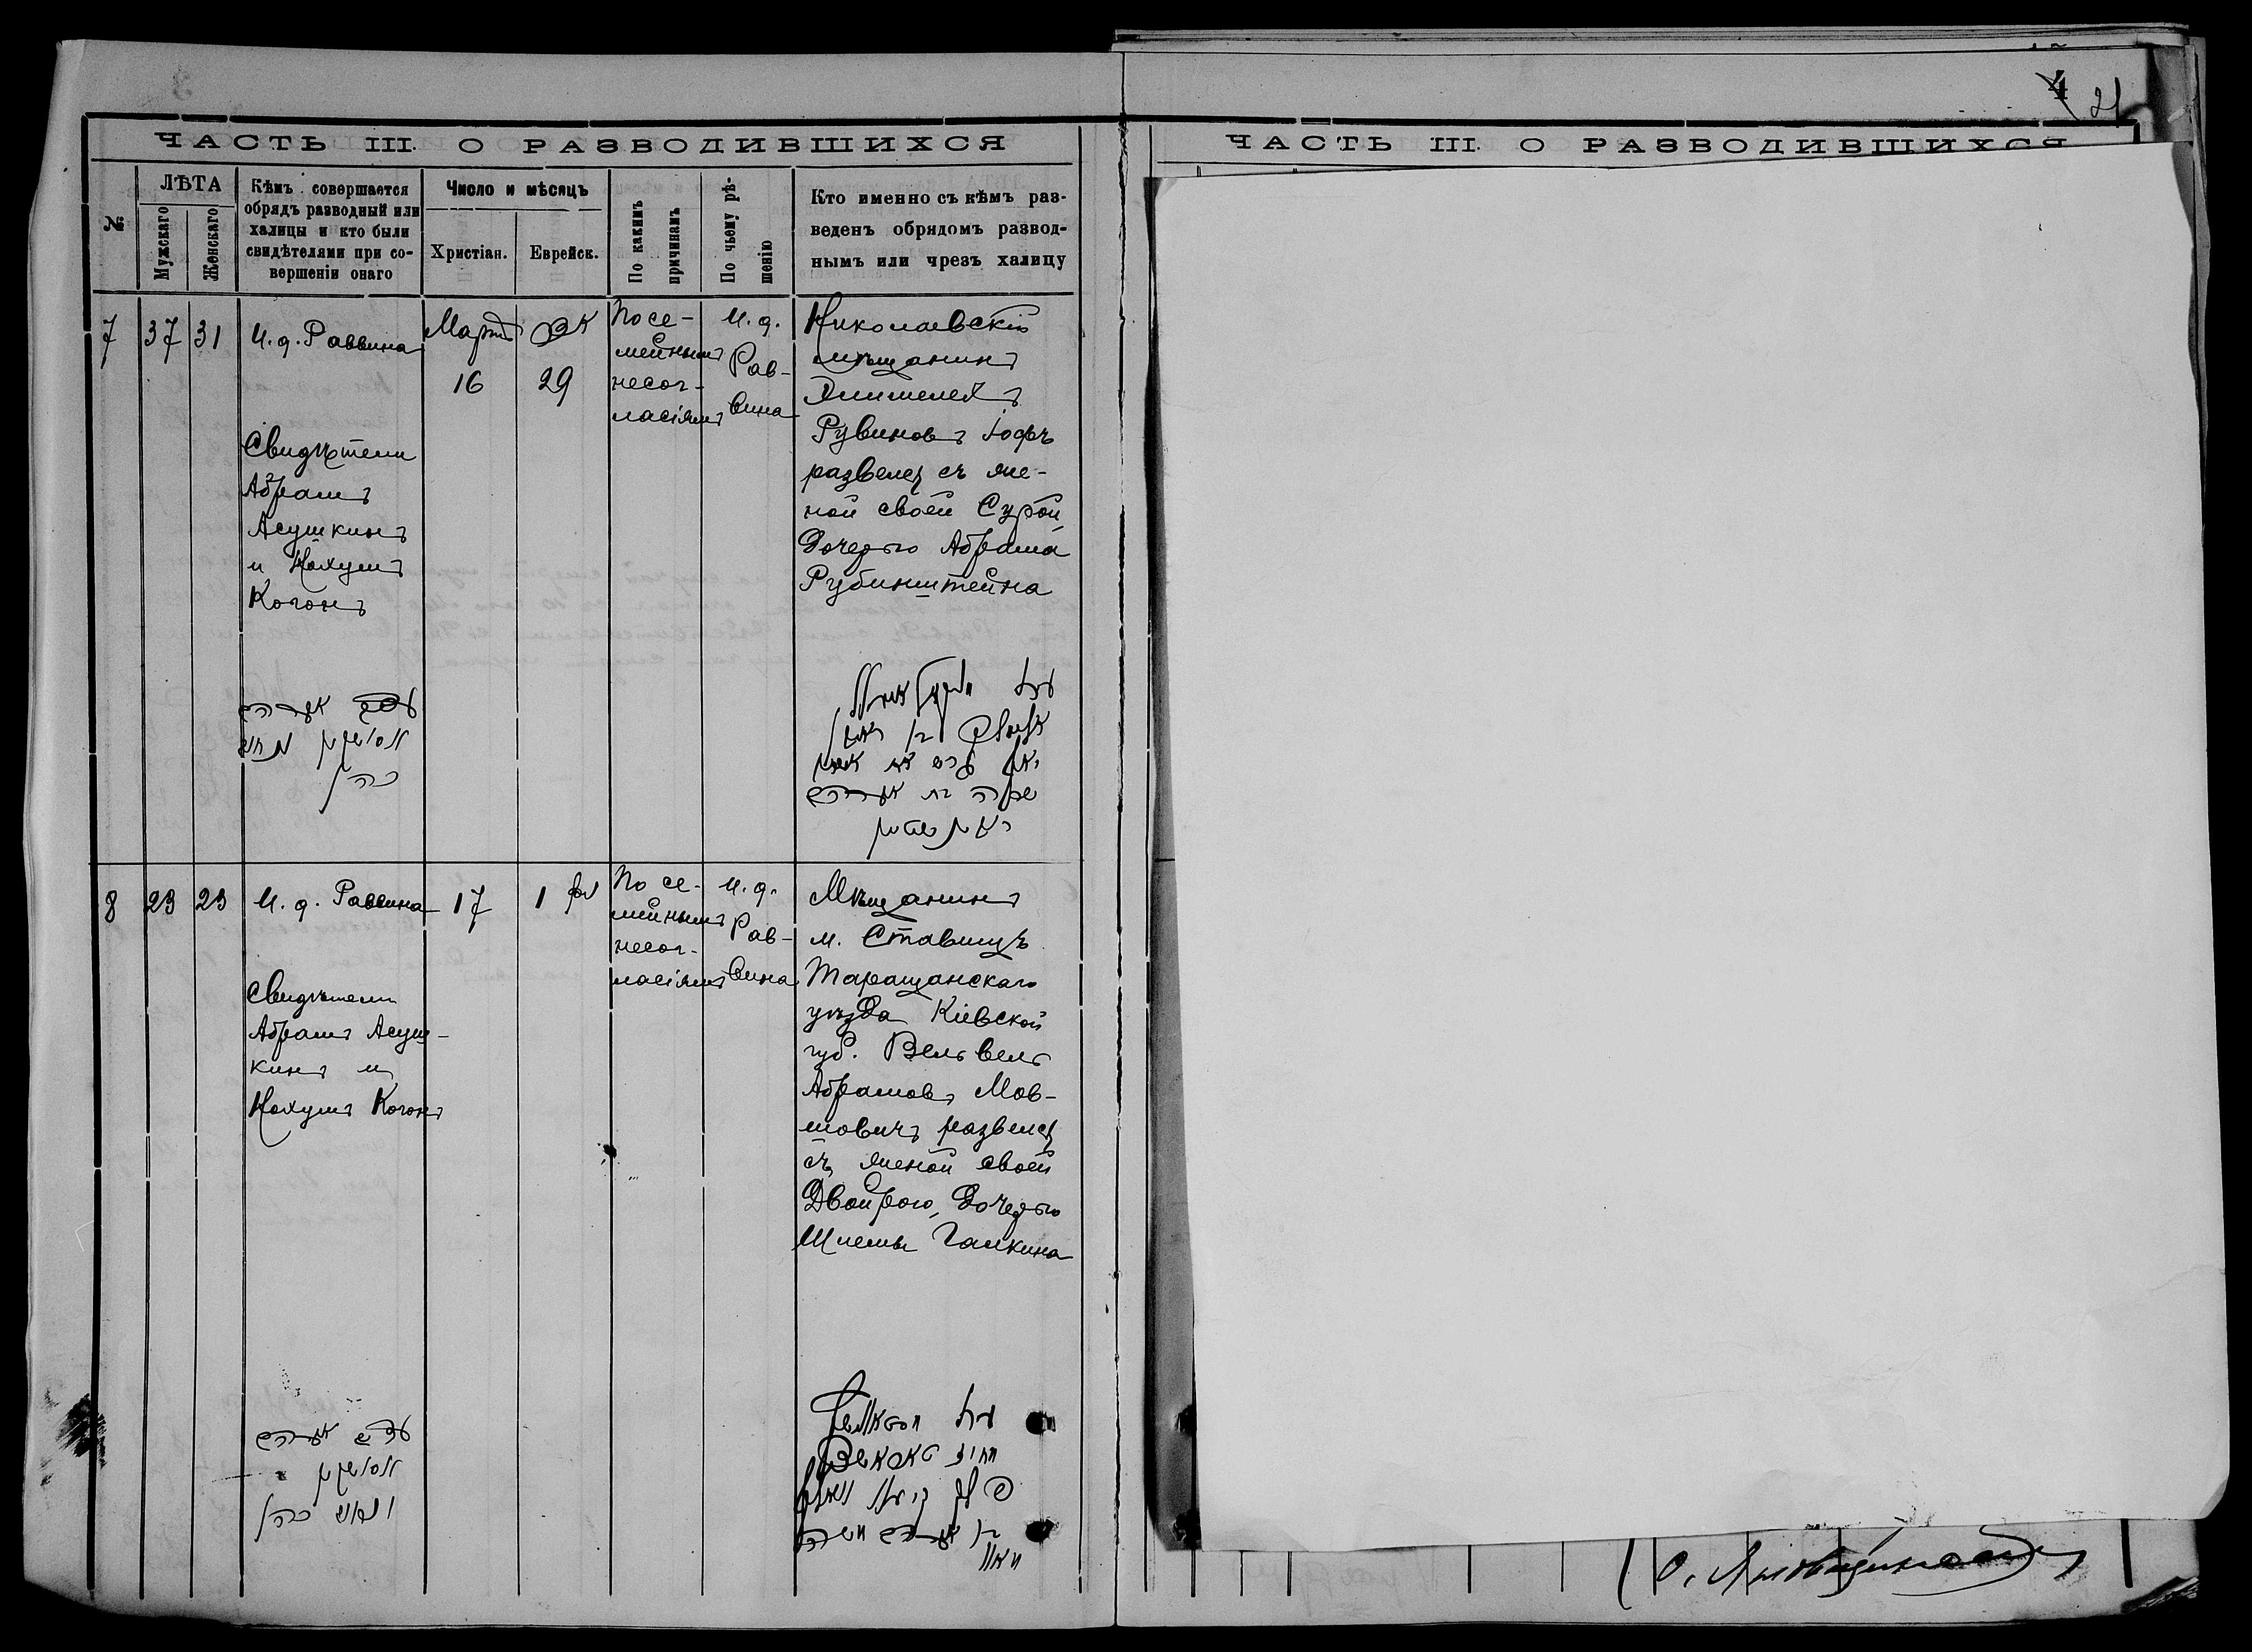 4
21
ЧАСТЬ III. О РАЗВОДИВШИХСЯ
ЧАСТЬ III. О РАЗВОДИВШИХСЯ
№
ЛѢТА
Мужскаго
Женскаго
Кѣмъ совершается
обрядъ разводный или
халицы и кто были
свидѣтелями при со-
вершеніи онаго
Число и мѣсяцъ
Христіан.
Еврейск.
По какимъ
причинамъ
По чьему рѣ-
шенію
Кто именно съ кѣмъ раз-
веденъ обрядомъ развод-
нымъ или чрезъ халицу
7
37
31
И. д. Раввина
Свидѣтели
Абрамъ
Асушкинъ
и Нахумъ
Когонъ
אברהם
אסושקין
כהן
Мартъ
16
29
По се-
мейнымъ
несог-
ласіямъ
И. д.
Рав-
вина
Николаевскій
мѣщанинъ
Элимелехъ
Рувиновъ Іофъ
развелся съ же-
ной своей Сурой,
дочерью Абрама
Рубинштейна
שרה בת אברהם
8
23
23
И. д. Раввина
Свидѣтели
Абрамъ Асуш-
кинъ и
Нахумъ Когонъ
אברהם
אסושקין
כהן
17
1
По се-
мейнымъ
несог-
ласіямъ
И. д.
Рав-
вина
Мѣщанинъ
м. Ставищъ
Таращанскаго
уѣзда Кіевской
губ. Вельвель
Абрамовъ Мов-
шовичъ развелся
съ женой своей
Двойрою, дочерью
Шлемы Галкина
בן אברהם